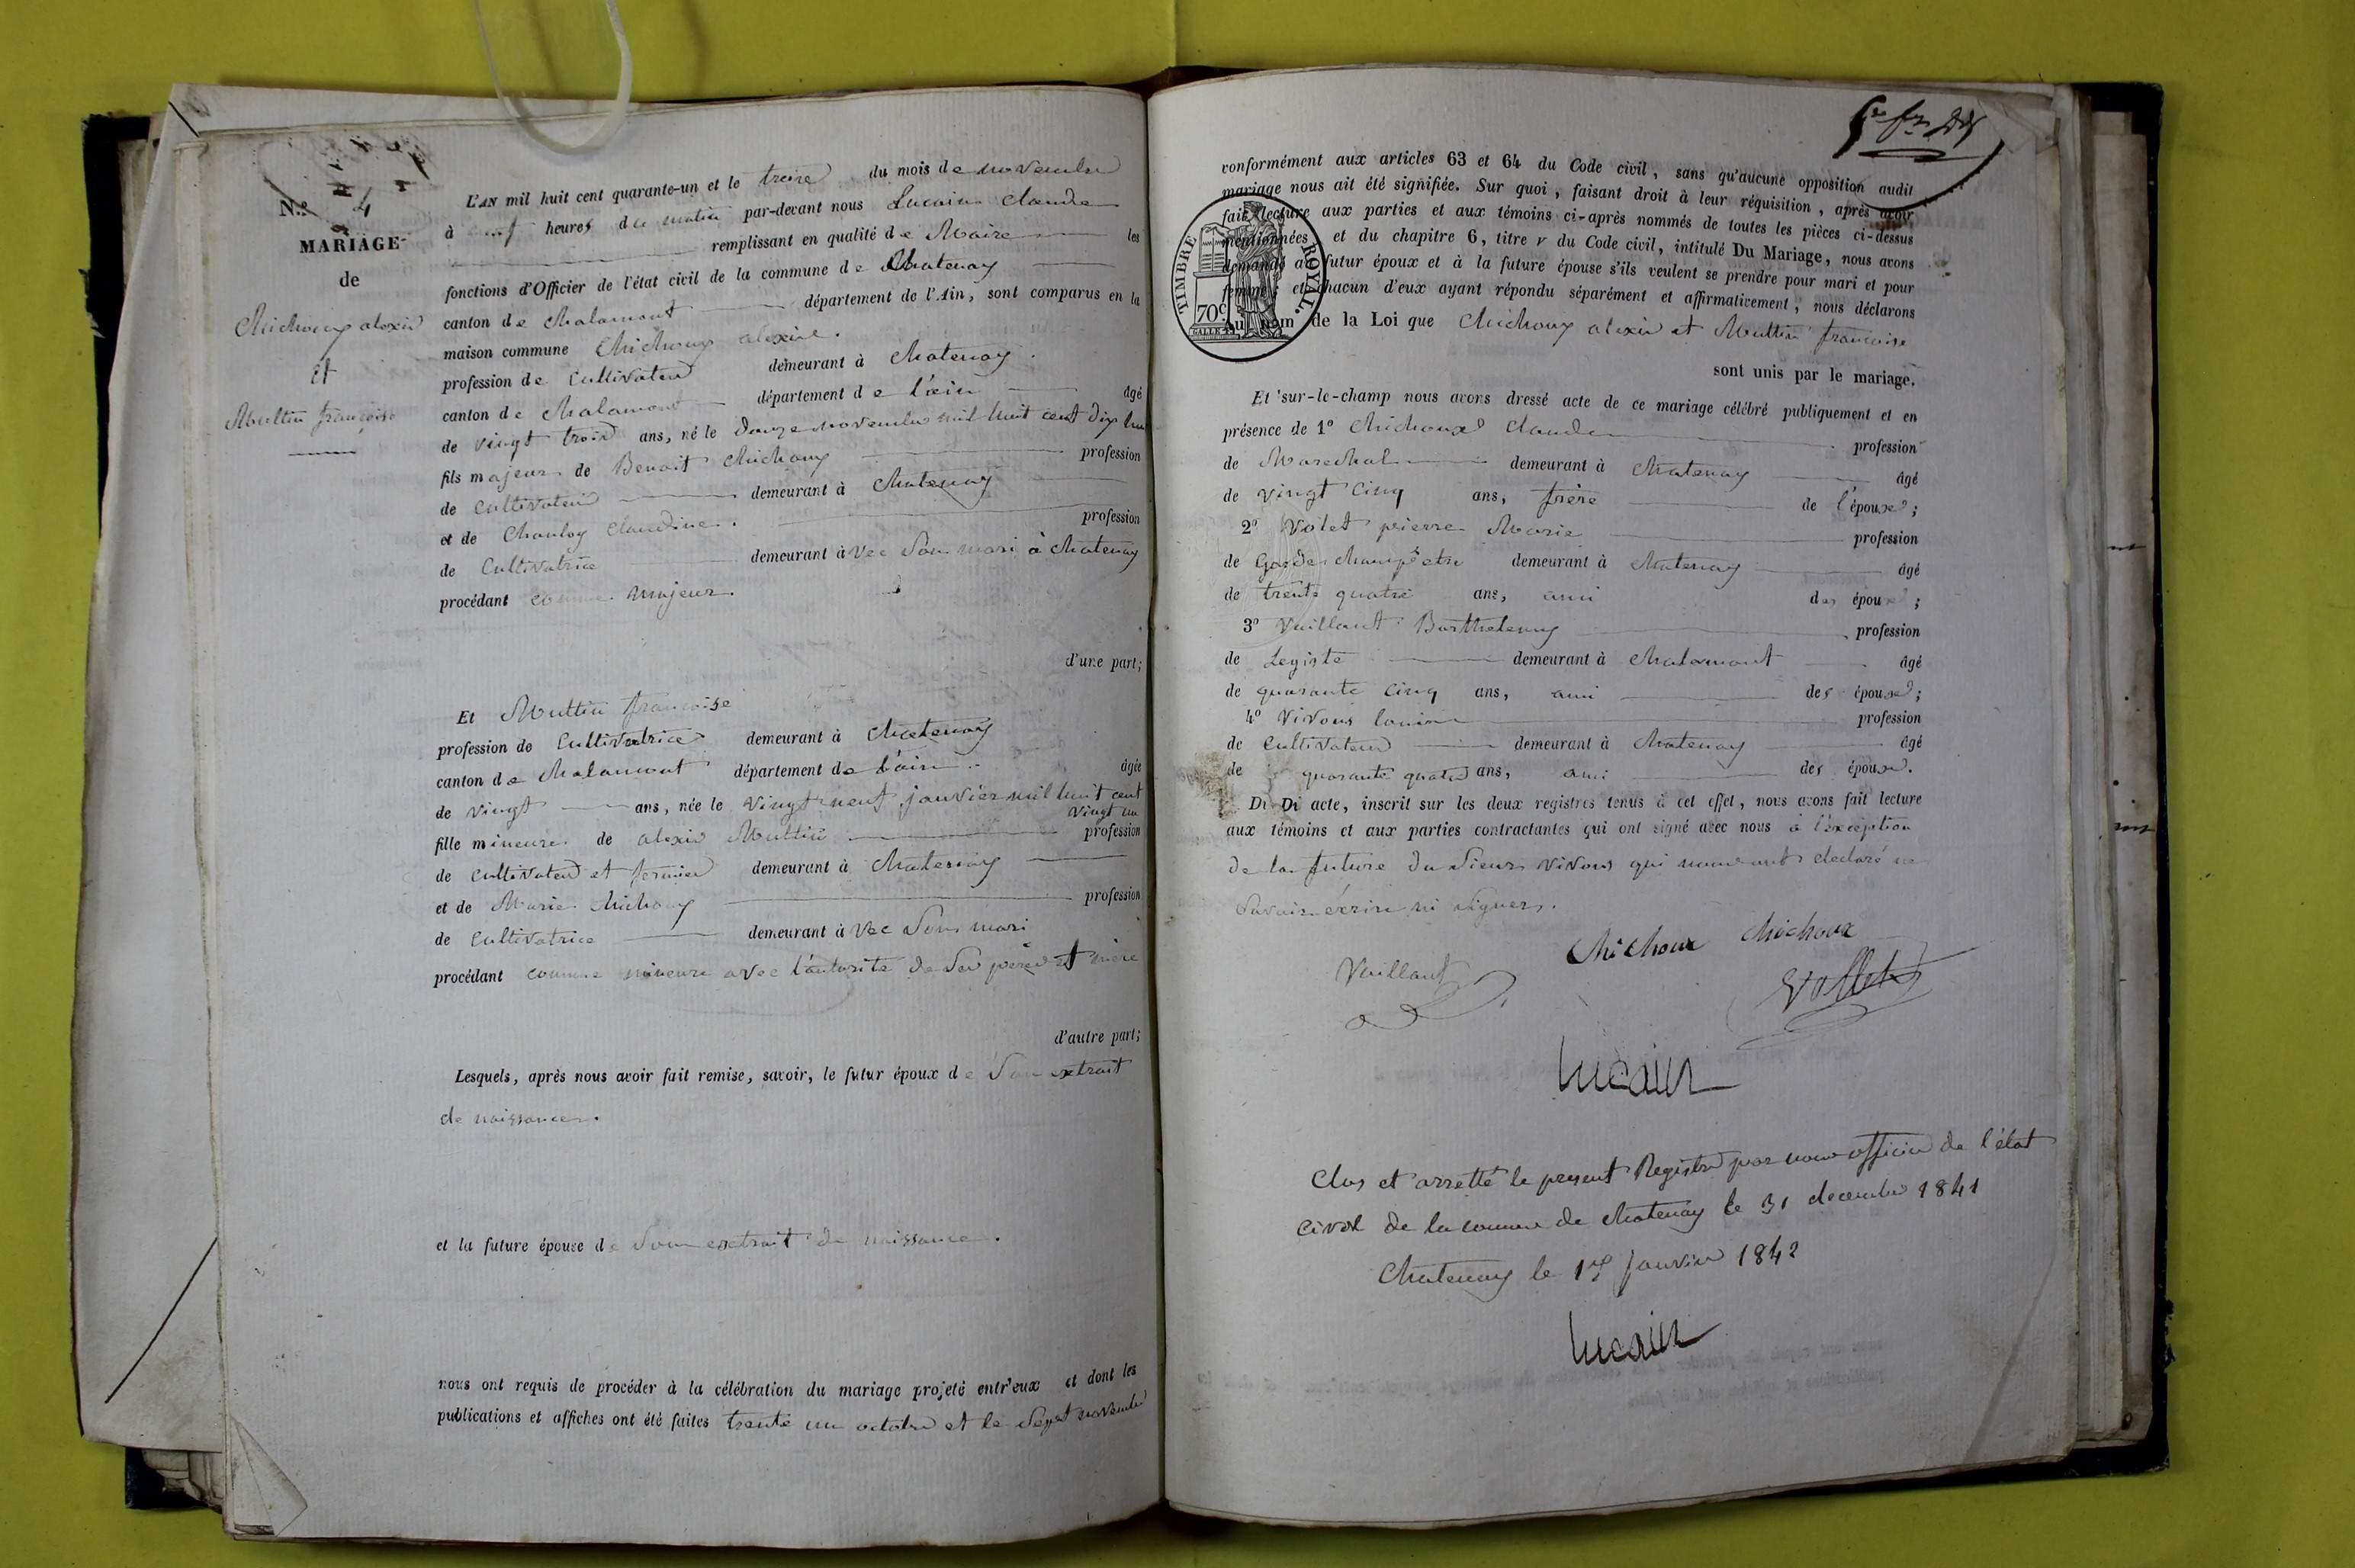 N.º 4
MARIAGE
de
Chichoux alexis
Et
Multin françoise
L'AN mil huit cent quarante-un et le treize du mois de novembre
à heures du matin par-devant nous Lucain Claude
remplissant en qualité de Maire les
fonctions d'Officier de l'état civil de la commune de Chatenay
canton de Chalamont département de l'Ain, sont comparus en la
maison commune Chichoux alexis.
profession de Cultivateur demeurant à Chatenay.
canton de Chalamont département de l'ain âgé
de vingt trois ans, né le douze novembre mil huit cent dix huit
fils majeur de Benoit Chichoux profession
de Cultivateur demeurant à Chatenay
et de Chanloy Claudine. profession
de Cultivatrice demeurant àvec son mari à Chatenay
procédant comme majeur.
d'une part;
Et Multin françoise
profession de Cultivatrice demeurant à Chatenay
canton de Chalamont département de l'ain âgée
de vingt ans, née le vingt neuf janvier mil huit cent
vingt un
fille mineure de alexis Multin profession
de cultivateur et fermier demeurant à Chatenay
et de Marie Chichoux profession
de Cultivatrice demeurant àvec son mari
procédant comme mineure avec l'autorité de ses père et mère
d'autre part;
Lesquels, après nous avoir fait remise, savoir, le futur époux de son extrait
de naissance.
et la future épouse de son extrait de naissance.
nous ont requis de procéder à la célébration du mariage projeté entr'eux et dont les
publications et affiches ont été faites trente un octobre et le sept novembre
conformément aux articles 63 et 64 du Code civil, sans qu'aucune opposition audit
mariage nous ait été signifiée. Sur quoi, faisant droit à leur réquisition, après avoir
fait lecture aux parties et aux témoins ci-après nommés de toutes les pièces ci-dessus
mentionnées et du chapitre 6, titre v du Code civil, intitulé Du Mariage, nous avons
demandé au futur époux et à la future épouse s'ils veulent se prendre pour mari et pour
femme; et chacun d'eux ayant répondu séparément et affirmativement, nous déclarons
au nom de la Loi que Chichoux alexis et Multin françoise
TIMBRE ROYAL.
70c
sont unis par le mariage.
Et sur-le-champ nous avons dressé acte de ce mariage célébré publiquement et en
présence de 1º Chichoux Claude profession
de Marechal demeurant à Chatenay âgé
de vingt cinq ans, frère de l'époux;
2º Volet pierre Marie profession
de Garde champêtre demeurant à Chatenay âgé
de trente quatre ans, ami des époux;
3º Vuillaut Barthelemy profession
de Legiste demeurant à Chalamont âgé
de quarante cinq ans, ami des époux;
4º Vivous profession
de Cultivateur demeurant à Chatenay âgé
de quarante quatre ans, ami des époux.
Di Di acte, inscrit sur les deux registres tenus à cet effet, nous avons fait lecture
aux témoins et aux parties contractantes qui ont signé avec nous à l'exception
de la future du Sieur Vivous qui nous ont declaré ne
Savoir écrire ni signer.
Vuillaut Chichoux Chichoux
Vollet
Lucain
Clos et arretté le present Registre par nous officier de l'état
Civil de la comune de Chatenay le 31 decembre 1841
Chatenay le 1er Janvier 1842
Lucain